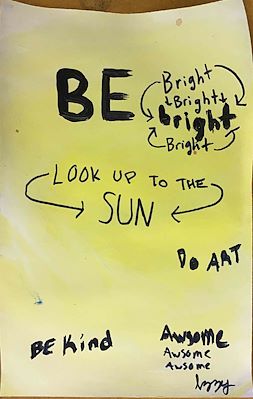 BE
Bright
Bright
bright
Bright
LOOK UP TO THE
SUN
DO ART
BE Kind
Awsome
Awsome
Awsome
Izzy